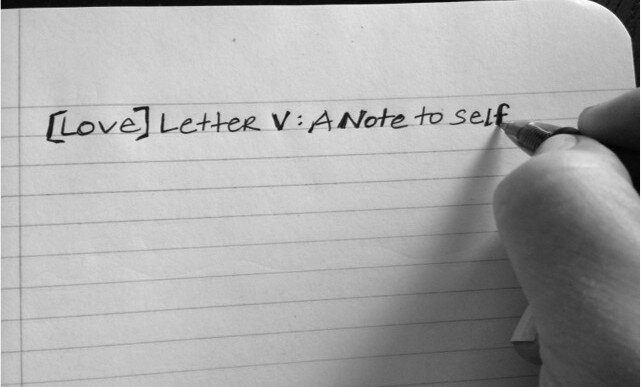 [Love] Letter V: A Note to self